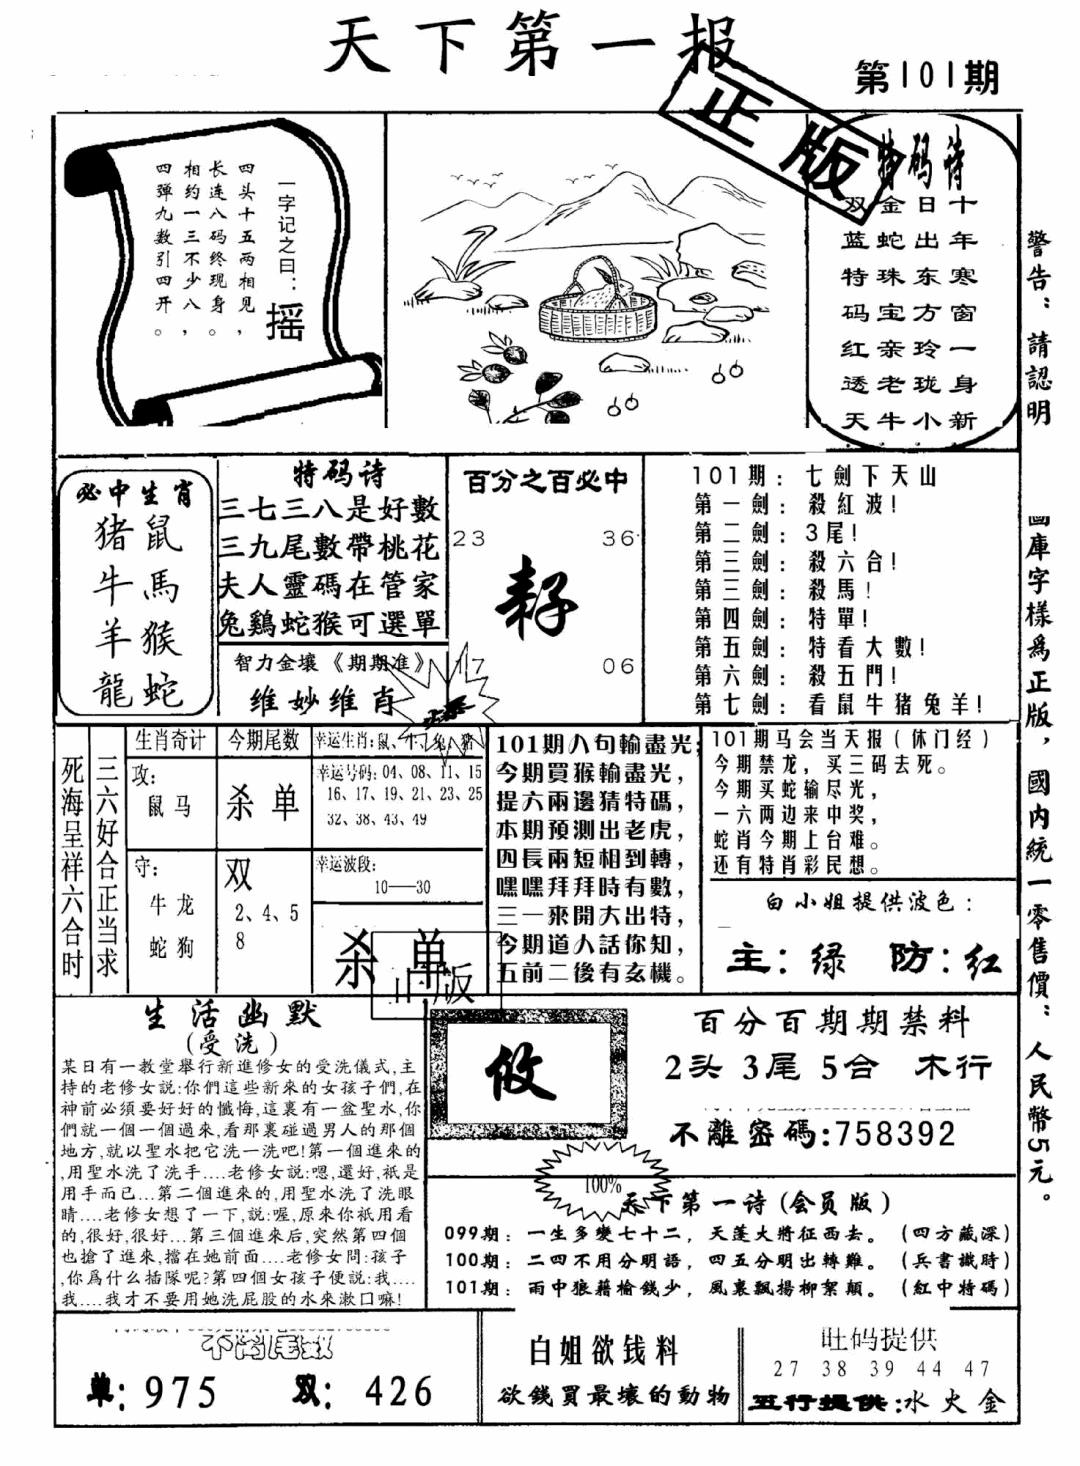 天下第一报
第101期
正版
一字记之曰：
摇
四头十五两相见，
长连八码终现身。
相约一三不少八，
四弹九数引四开。
特码诗
十年寒窗一身新
日出东方玲珑小
金蛇珠宝亲老牛
双蓝特码红透天
警告：請認明
國庫字樣爲正版，國内統一零售價：人民幣5元。
必中生肖
猪鼠
牛馬
羊猴
龍蛇
特码诗
三七三八是好數
三九尾數帶桃花
夫人靈碼在管家
兔鷄蛇猴可選單
智力金壤《期期准》
维妙维肖
百分之百必中
23 36
17 06
101期：七劍下天山
第一劍：殺紅波!
第二劍：3尾!
第三劍：殺六合!
第三劍：殺馬!
第四劍：特單!
第五劍：特看大數!
第六劍：殺五門!
第七劍：看鼠牛猪兔羊!
死海呈祥六合时
三六好合正当求
生肖奇计
攻：
鼠马
守：
牛龙
蛇狗
今期尾数
杀单
双
2、4、5
8
幸运生肖：鼠、牛、兔、猪
幸运号码：04、08、11、15
16、17、19、21、23、25
32、38、43、49
幸运波段：
10——30
杀单
正版
101期八句輸盡光；
今期買猴輸盡光，
提六兩邊猜特碼，
本期預測出老虎，
四長兩短相到轉，
嘿嘿拜拜時有數，
三一來開大出特，
今期道人話你知，
五前二後有玄機。
101期马会当天报（休门经）
今期禁龙，买三码去死。
今期买蛇输尽光，
一六两边来中奖，
蛇肖今期上台难。
还有特肖彩民想。
白小姐提供波色：
主：绿 防：红
生活幽默
(受洗)
某日有一教堂舉行新進修女的受洗儀式,主
持的老修女説:你們這些新來的女孩子們,在
神前必須要好好的懺悔,這裏有一盆聖水,你
們就一個一個過來,看那裏碰過男人的那個
地方,就以聖水把它洗一洗吧!第一個進來的
,用聖水洗了洗手....老修女説:嗯,還好,衹是
用手而已...第二個進來的,用聖水洗了洗眼
睛....老修女想了一下,説:喔,原來你衹用看
的,很好,很好...第三個進來后,突然第四個
也搶了進來,擋在她前面....老修女問:孩子
,你爲什么插隊呢?第四個女孩子便説:我....
我....我才不要用她洗屁股的水來漱口嘛!
攸
百分百期期禁料
2头 3尾 5合 木行
不離密碼:758392
100%
天下第一诗(会员版)
099期：一生多變七十二，天蓬大將征西去。（四方藏深）
100期：二四不用分明語，四五分明出轉難。（兵書識時）
101期：雨中狼藉榆錢少，風裏飄揚柳絮顛。（紅中特碼）
单：975 双：426
白姐欲钱料
欲錢買最壞的動物
旺码提供
27 38 39 44 47
五行提供:水火金